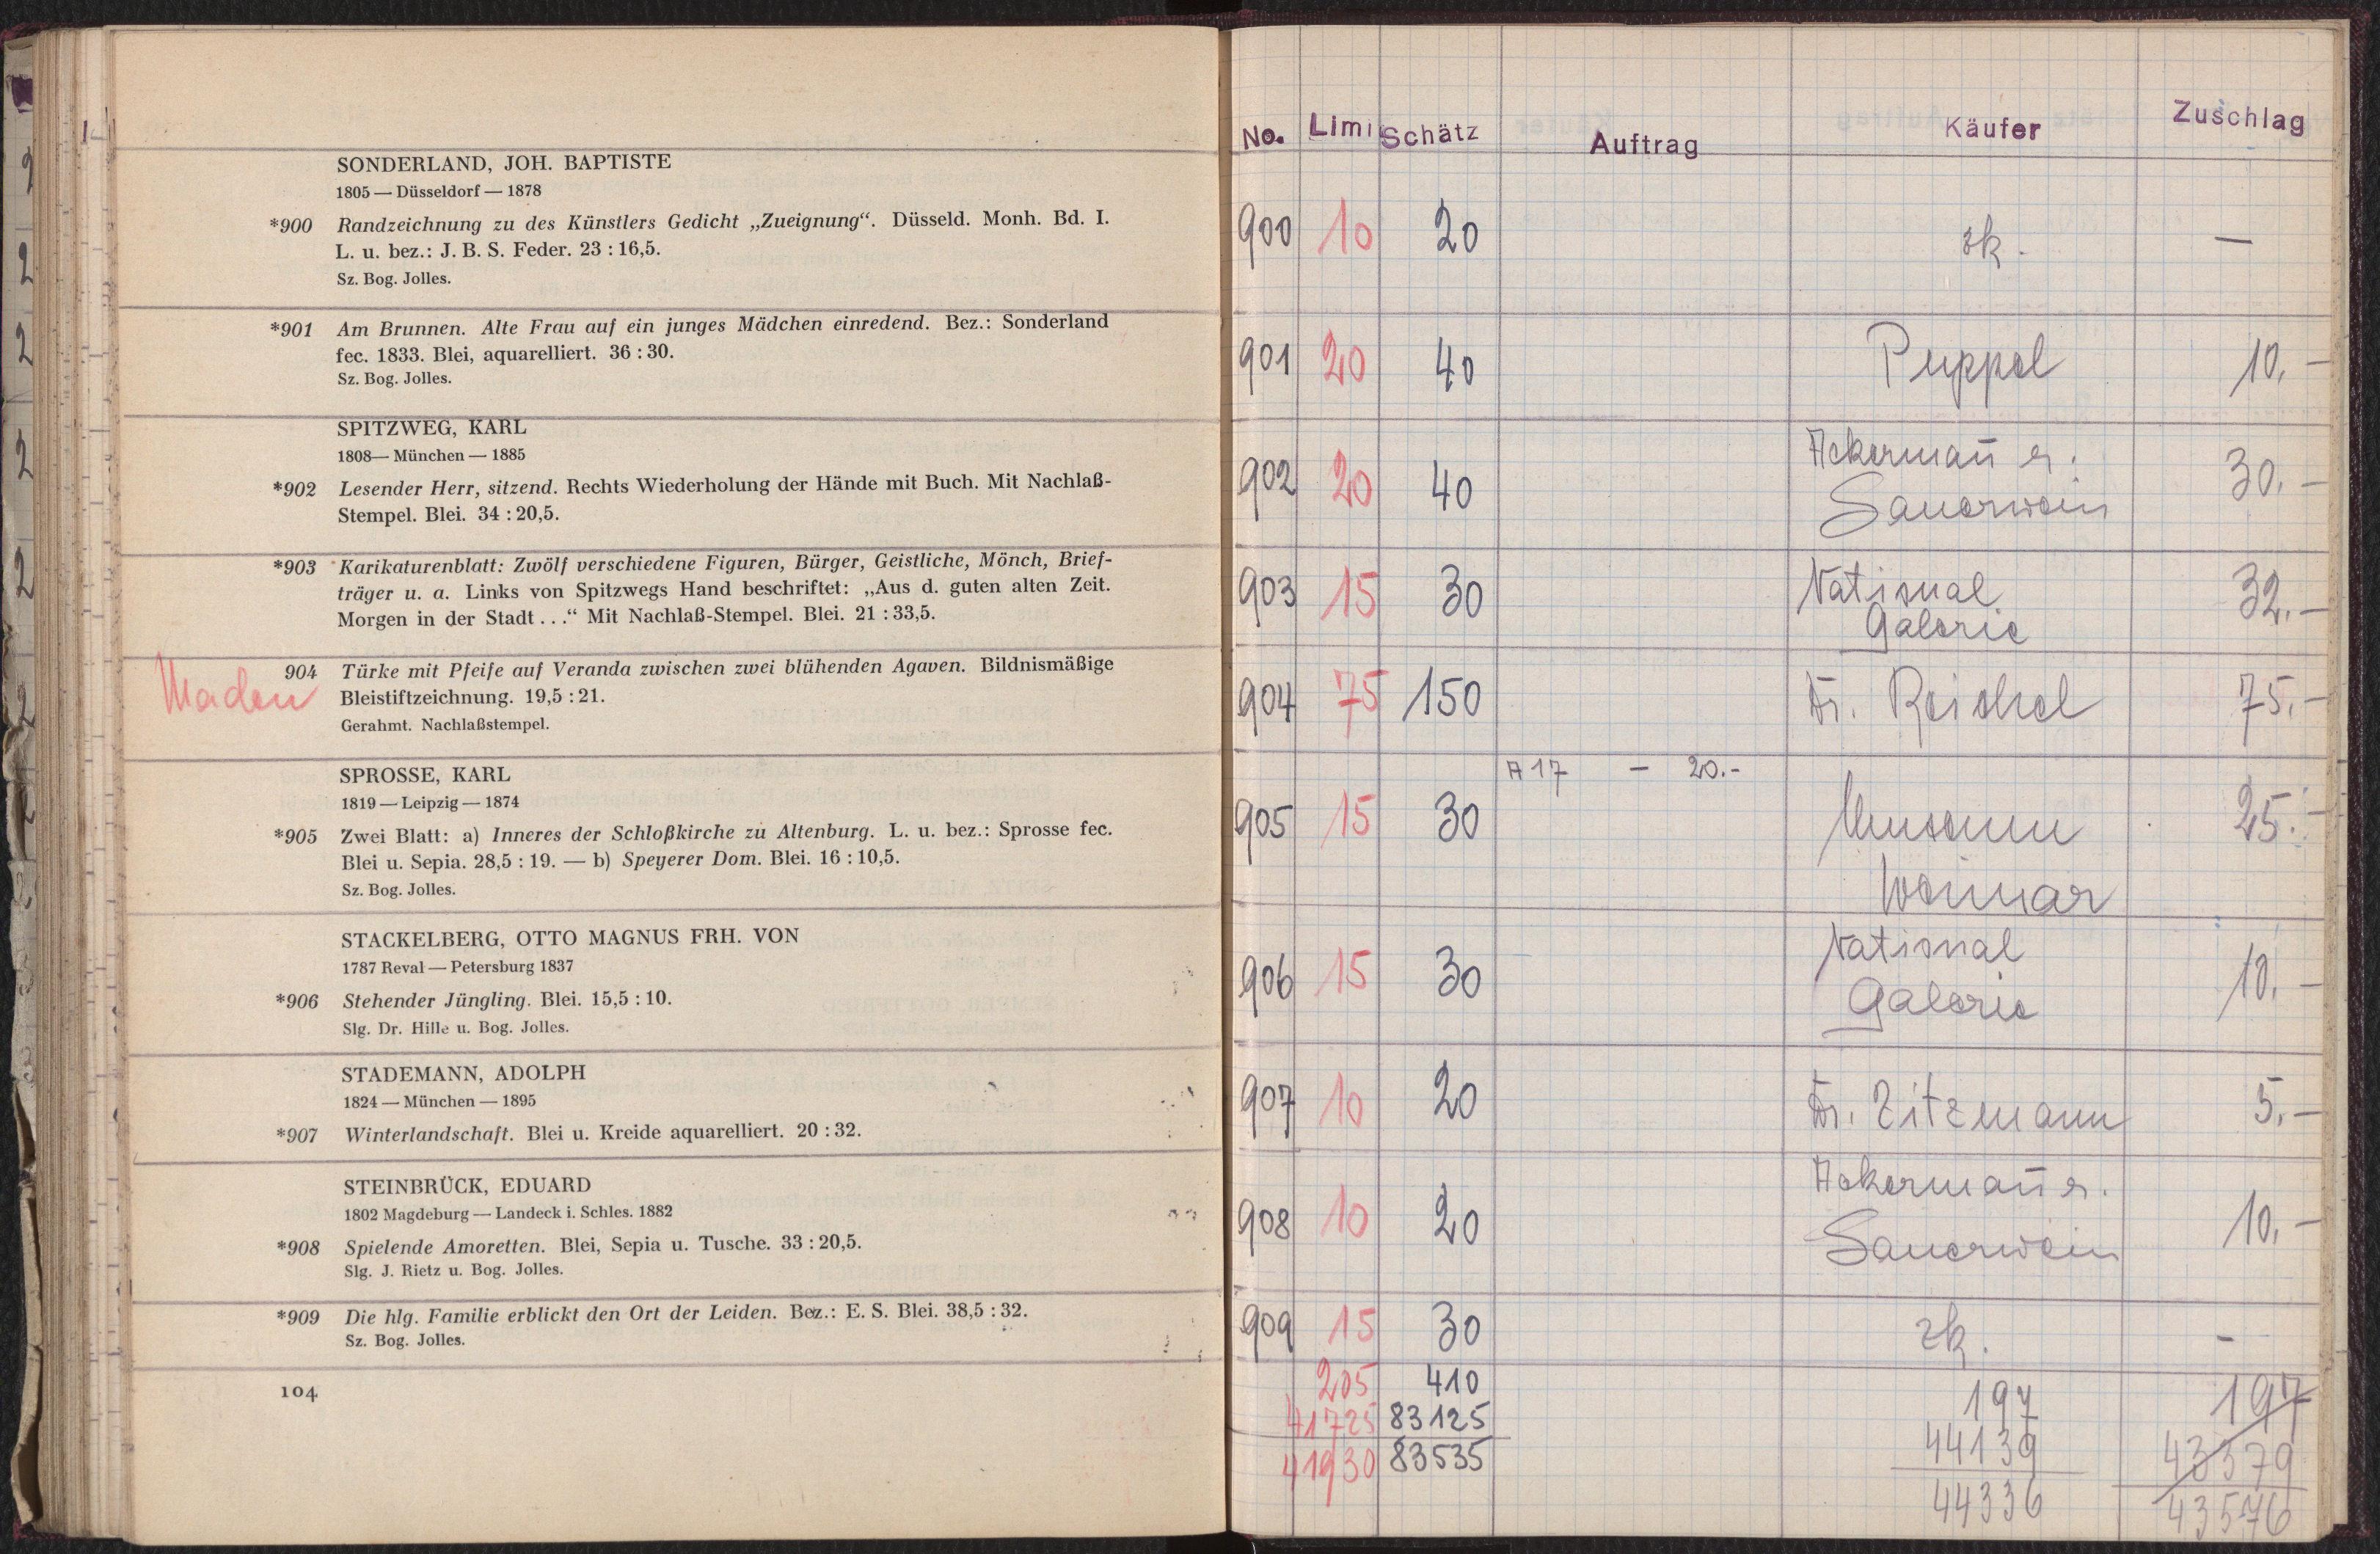 SONDERLAND, JOH. BAPTISTE
1805 — Düsseldorf — 1878
*900 Randzeichnung zu des Künstlers Gedicht „Zueignung“. Düsseld. Monh. Bd. I.
L. u. bez.: J. B. S. Feder. 23 : 16,5.
Sz. Bog. Jolles.
*901 Am Brunnen. Alte Frau auf ein junges Mädchen einredend. Bez.: Sonderland
fec. 1833. Blei, aquarelliert. 36 : 30.
Sz. Bog. Jolles.
SPITZWEG, KARL
1808— München — 1885
*902 Lesender Herr, sitzend. Rechts Wiederholung der Hände mit Buch. Mit Nachlaß-
Stempel. Blei. 34 : 20,5.
*903 Karikaturenblatt: Zwölf verschiedene Figuren, Bürger, Geistliche, Mönch, Brief-
träger u. a. Links von Spitzwegs Hand beschriftet: „Aus d. guten alten Zeit.
Morgen in der Stadt . . .“ Mit Nachlaß-Stempel. Blei. 21 : 33,5.
904 Türke mit Pfeife auf Veranda zwischen zwei blühenden Agaven. Bildnismäßige
Maden Bleistiftzeichnung. 19,5 : 21.
Gerahmt. Nachlaßstempel.
SPROSSE, KARL
1819 — Leipzig — 1874
*905 Zwei Blatt: a) Inneres der Schloßkirche zu Altenburg. L. u. bez.: Sprosse fec.
Blei u. Sepia. 28,5 : 19. — b) Speyerer Dom. Blei. 16 : 10,5.
Sz. Bog. Jolles.
STACKELBERG, OTTO MAGNUS FRH. VON
1787 Reval — Petersburg 1837
*906 Stehender Jüngling. Blei. 15,5 : 10.
Slg. Dr. Hille u. Bog. Jolles.
STADEMANN, ADOLPH
1824 — München — 1895
*907 Winterlandschaft. Blei u. Kreide aquarelliert. 20 : 32.
STEINBRÜCK, EDUARD
1802 Magdeburg — Landeck i. Schles. 1882
*908 Spielende Amoretten. Blei, Sepia u. Tusche. 33 : 20,5.
Slg. J. Rietz u. Bog. Jolles.
*909 Die hlg. Familie erblickt den Ort der Leiden. Bez.: E. S. Blei. 38,5 : 32.
Sz. Bog. Jolles.
104
No. Limi Schätz Auftrag Käufer Zuschlag
900 10 20 zk. —
901 20 40 Puppel 10.—
902 20 40 Ackermann & 30.—
Sauerwein
903 15 30 National 32.—
Galerie
904 75 150 Dr. Reichel 75.—
A 17 — 20.-
905 15 30 Museum 25.-
Weimar
906 15 30 National 10.—
Galerie
907 10 20 Dr. Zitzmann 5.—
908 10 20 Ackermann & 10.—
Sauerwein
909 15 30 zk. -
205 410 197 197
41725 83125 44139 43379
41930 83535 44336 43576